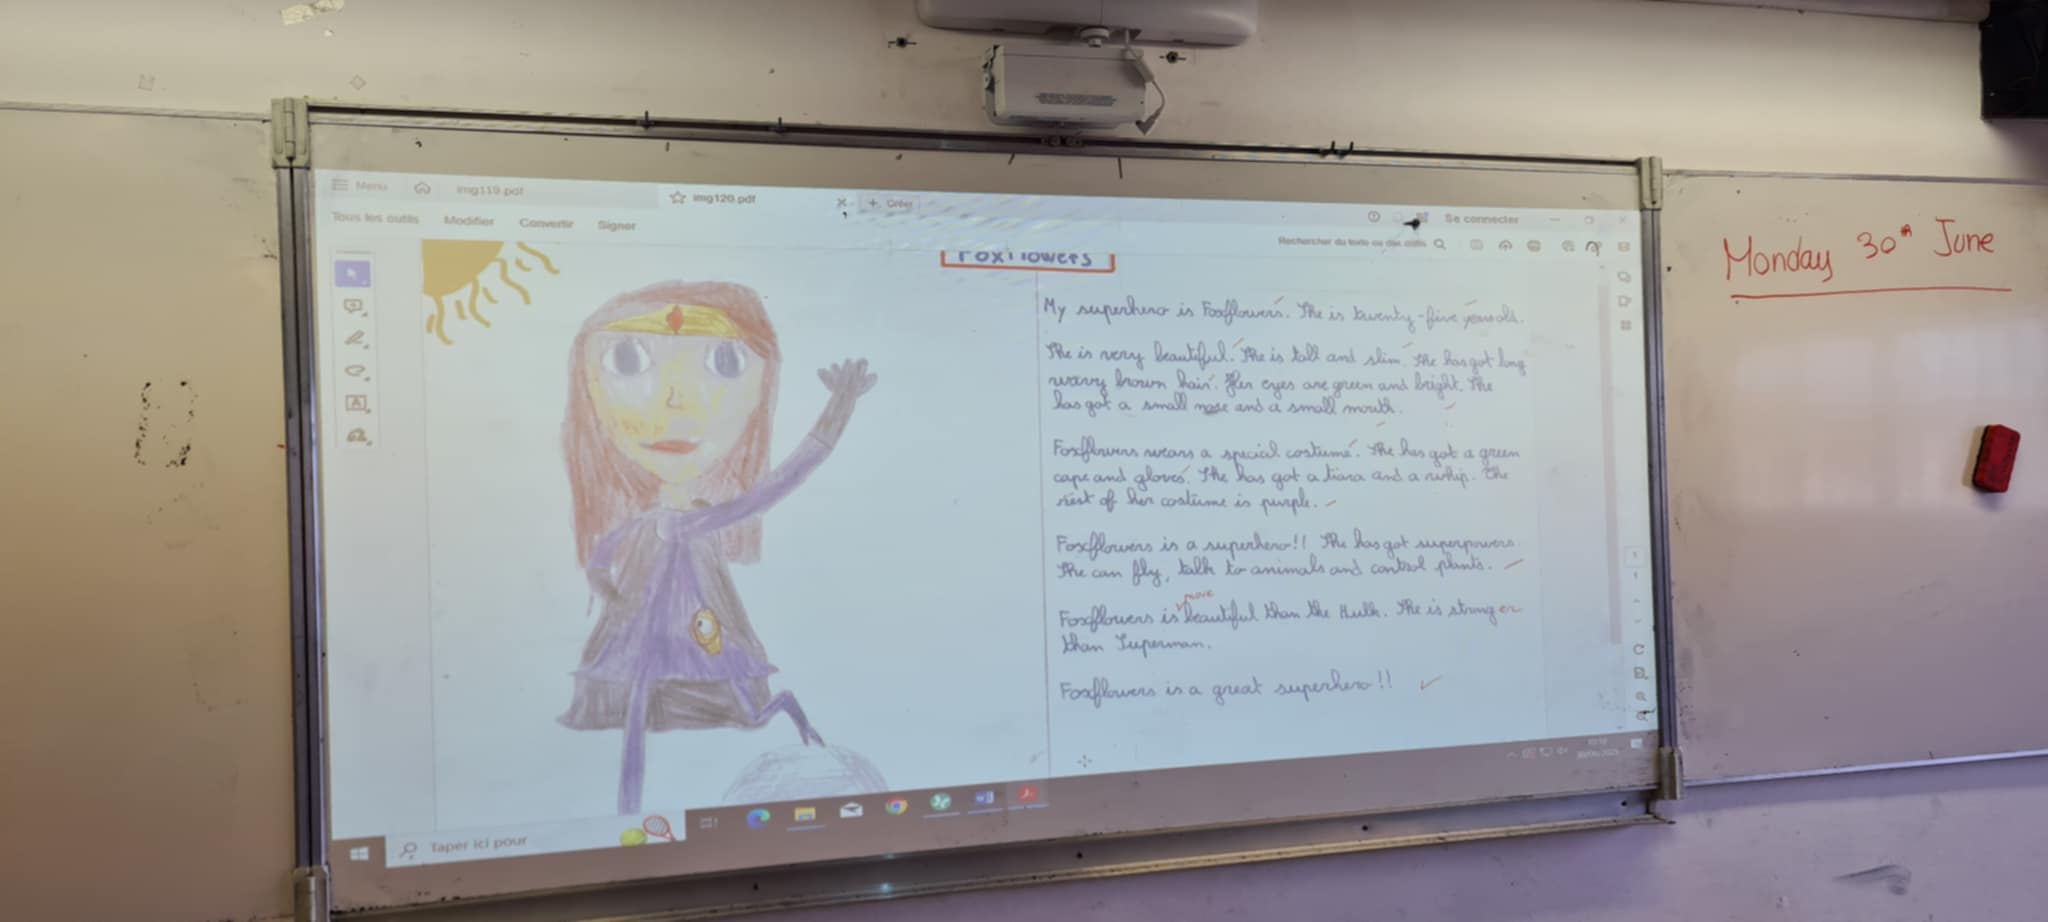 Menu
img119.pdf
img120.pdf
Créer
Se connecter
Tous les outils Modifier Convertir Signer
Rechercher du texte ou des outils
Foxflowers
My superhero is Foxflowers. She is twenty-five years old.
She is very beautiful. She is tall and slim. She has got long
wavy brown hair. Her eyes are green and bright. She
has got a small nose and a small mouth.
Foxflowers wears a special costume. She has got a green
cape and gloves. She has got a tiara and a whip. The
rest of her costume is purple.
Foxflowers is a superhero!! She has got superpowers.
She can fly, talk to animals and control plants.
Foxflowers is more beautiful than the Hulk. She is stronger
than Superman.
Foxflowers is a great superhero!!
Taper ici pour
Monday 30th June